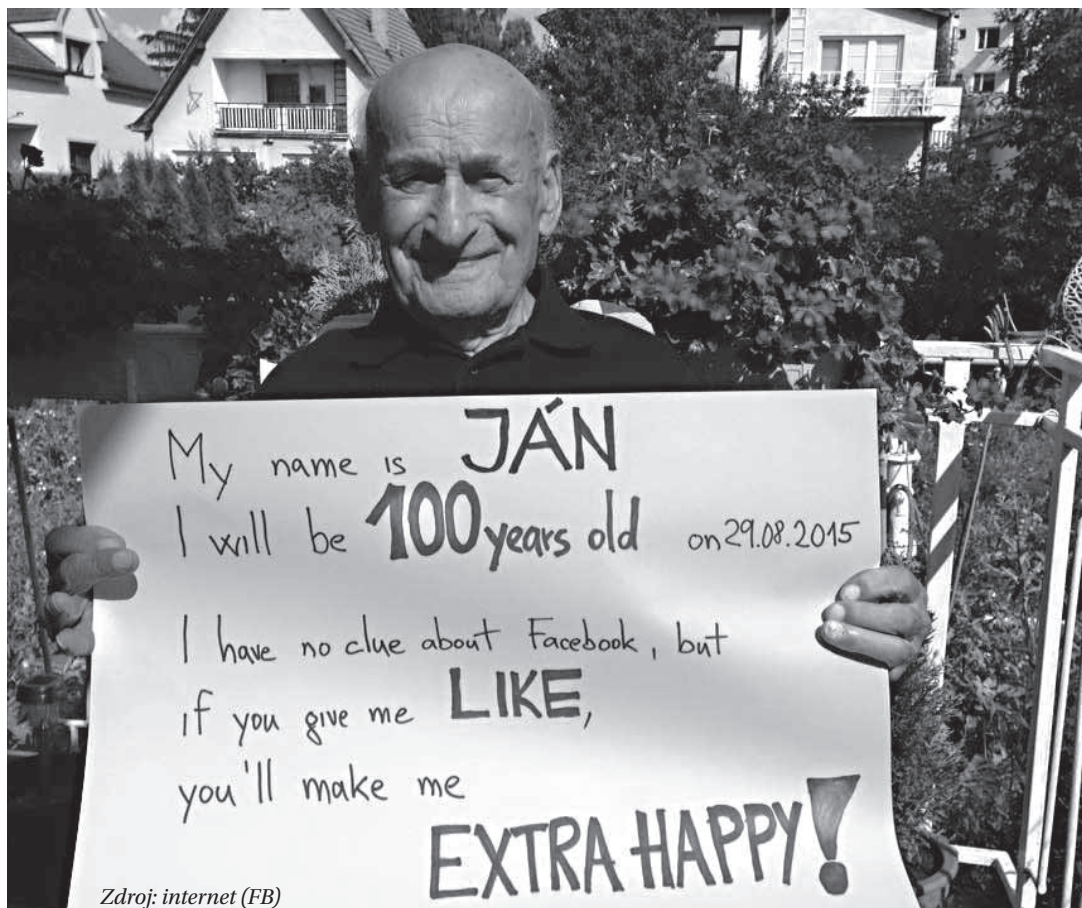 My name is JÁN
I will be 100 years old on 29.08.2015
I have no clue about Facebook, but
if you give me LIKE,
you'll make me
EXTRA HAPPY!
Zdroj: internet (FB)